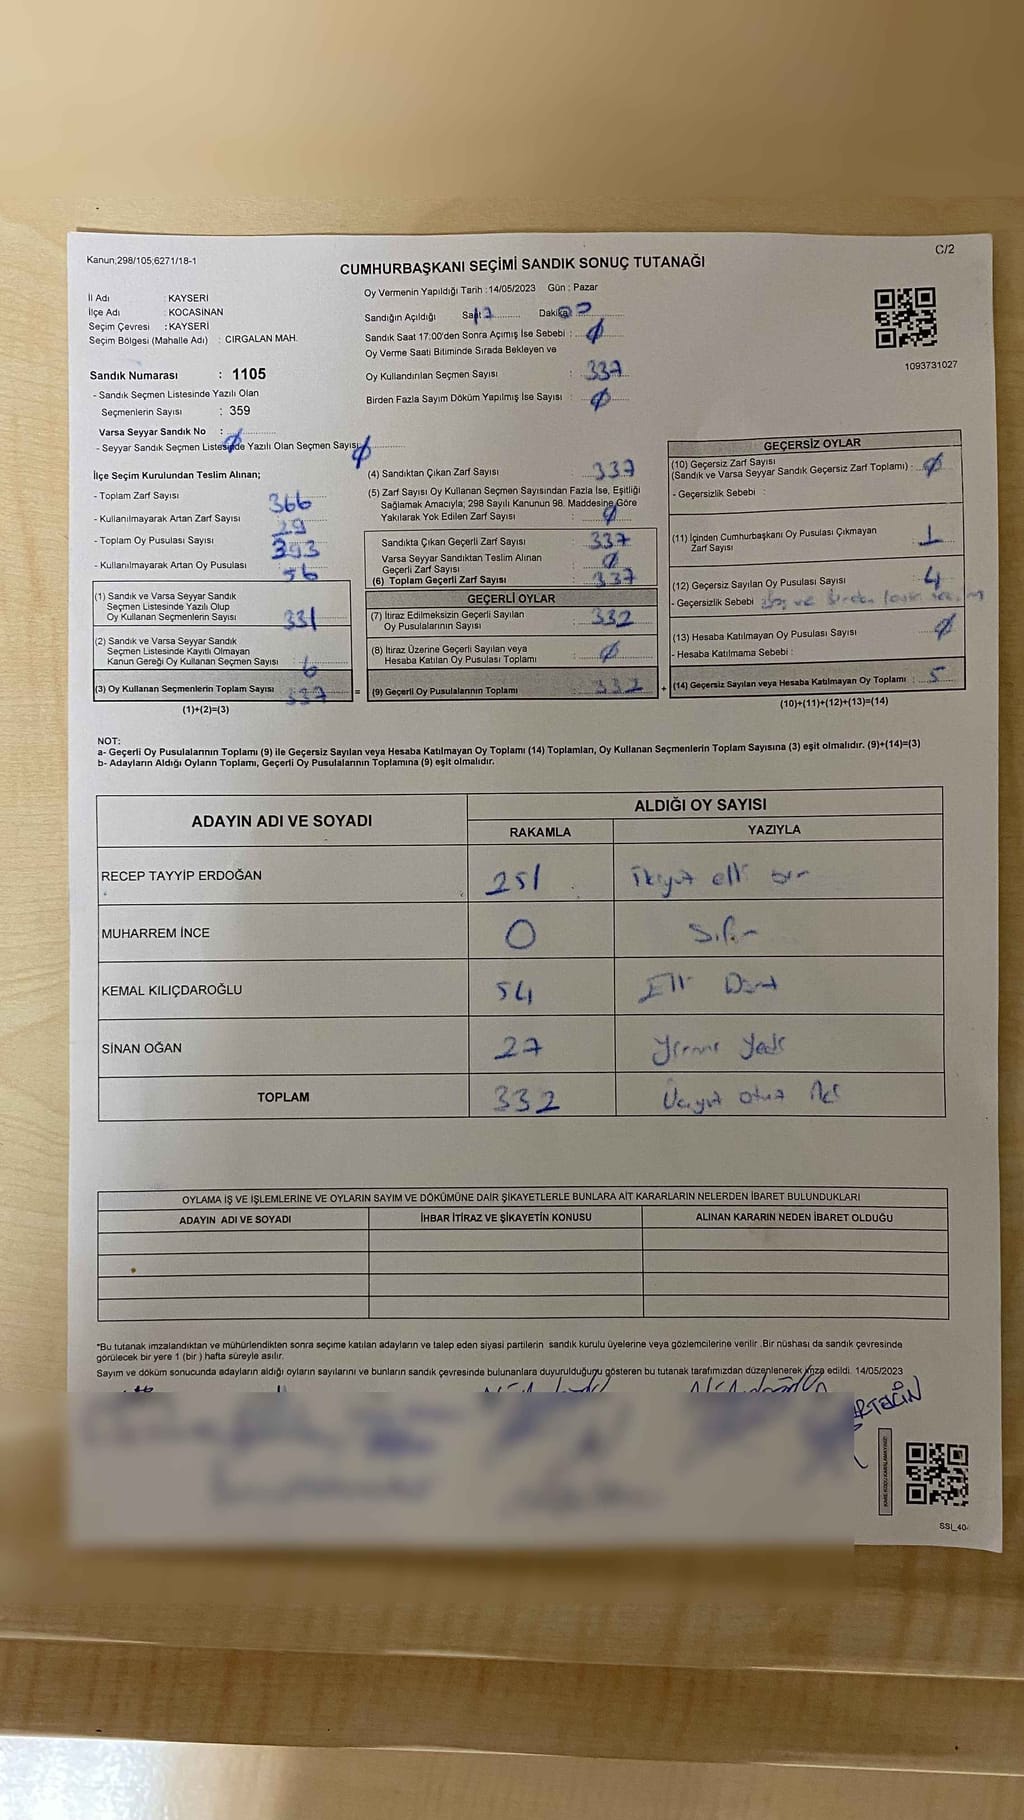 Kanun,298/105,6271/18-1
C/2
CUMHURBAŞKANI SEÇİMİ SANDIK SONUÇ TUTANAĞI
İl Adı : KAYSERİ
İlçe Adı : KOCASİNAN
Seçim Çevresi : KAYSERİ
Seçim Bölgesi (Mahalle Adı) : CIRGALAN MAH.
Oy Vermenin Yapıldığı Tarih :14/05/2023 Gün : Pazar
Sandığın Açıldığı Saat 17 Dakika
Sandık Saat 17:00'den Sonra Açımış İse Sebebi : Ø
Oy Verme Saati Bitiminde Sırada Bekleyen ve
Oy Kullandırılan Seçmen Sayısı : 337
Birden Fazla Sayım Döküm Yapılmış İse Sayısı : Ø
1093731027
Sandık Numarası : 1105
- Sandık Seçmen Listesinde Yazılı Olan
Seçmenlerin Sayısı : 359
Varsa Seyyar Sandık No : Ø
- Seyyar Sandık Seçmen Listesinde Yazılı Olan Seçmen Sayısı Ø
İlçe Seçim Kurulundan Teslim Alınan;
- Toplam Zarf Sayısı 366
- Kullanılmayarak Artan Zarf Sayısı 29
- Toplam Oy Pusulası Sayısı 393
- Kullanılmayarak Artan Oy Pusulası 56
(1) Sandık ve Varsa Seyyar Sandık
Seçmen Listesinde Yazılı Olup
Oy Kullanan Seçmenlerin Sayısı 331
(2) Sandık ve Varsa Seyyar Sandık
Seçmen Listesinde Kayıtlı Olmayan
Kanun Gereği Oy Kullanan Seçmen Sayısı 6
(3) Oy Kullanan Seçmenlerin Toplam Sayısı 337 =
(1)+(2)=(3)
(4) Sandıktan Çıkan Zarf Sayısı 337
(5) Zarf Sayısı Oy Kullanan Seçmen Sayısından Fazla İse, Eşitliği
Sağlamak Amacıyla, 298 Sayılı Kanunun 98. Maddesine Göre
Yakılarak Yok Edilen Zarf Sayısı : Ø
Sandıkta Çıkan Geçerli Zarf Sayısı : 337
Varsa Seyyar Sandıktan Teslim Alınan
Geçerli Zarf Sayısı : Ø
(6) Toplam Geçerli Zarf Sayısı : 337
GEÇERLİ OYLAR
(7) İtiraz Edilmeksizin Geçerli Sayılan
Oy Pusulalarının Sayısı : 332
(8) İtiraz Üzerine Geçerli Sayılan veya
Hesaba Katılan Oy Pusulası Toplamı : Ø
(9) Geçerli Oy Pusulalarının Toplamı : 332 +
GEÇERSİZ OYLAR
(10) Geçersiz Zarf Sayısı
(Sandık ve Varsa Seyyar Sandık Geçersiz Zarf Toplamı) : Ø
- Geçersizlik Sebebi :
(11) İçinden Cumhurbaşkanı Oy Pusulası Çıkmayan
Zarf Sayısı : 1
(12) Geçersiz Sayılan Oy Pusulası Sayısı : 4
- Geçersizlik Sebebi ve birden
(13) Hesaba Katılmayan Oy Pusulası Sayısı : Ø
- Hesaba Katılmama Sebebi :
(14) Geçersiz Sayılan veya Hesaba Katılmayan Oy Toplamı : 5
(10)+(11)+(12)+(13)=(14)
NOT:
a- Geçerli Oy Pusulalarının Toplamı (9) ile Geçersiz Sayılan veya Hesaba Katılmayan Oy Toplamı (14) Toplamları, Oy Kullanan Seçmenlerin Toplam Sayısına (3) eşit olmalıdır. (9)+(14)=(3)
b- Adayların Aldığı Oyların Toplamı, Geçerli Oy Pusulalarının Toplamına (9) eşit olmalıdır.
ADAYIN ADI VE SOYADI
ALDIĞI OY SAYISI
RAKAMLA YAZIYLA
RECEP TAYYİP ERDOĞAN 251 İkiyüz elli bir
MUHARREM İNCE 0 Sıfır
KEMAL KILIÇDAROĞLU 54 Elli Dört
SİNAN OĞAN 27 Yirmi Yedi
TOPLAM 332 Üçyüz otuz iki
OYLAMA İŞ VE İŞLEMLERİNE VE OYLARIN SAYIM VE DÖKÜMÜNE DAİR ŞİKAYETLERLE BUNLARA AİT KARARLARIN NELERDEN İBARET BULUNDUKLARI
ADAYIN ADI VE SOYADI İHBAR İTİRAZ VE ŞİKAYETİN KONUSU ALINAN KARARIN NEDEN İBARET OLDUĞU
*Bu tutanak imzalandıktan ve mühürlendikten sonra seçime katılan adayların ve talep eden siyasi partilerin sandık kurulu üyelerine veya gözlemcilerine verilir .Bir nüshası da sandık çevresinde
görülecek bir yere 1 (bir ) hafta süreyle asılır.
Sayım ve döküm sonucunda adayların aldığı oyların sayılarını ve bunların sandık çevresinde bulunanlara duyurulduğunu gösteren bu tutanak tarafımızdan düzenlenerek imza edildi. 14/05/2023
SSI_40